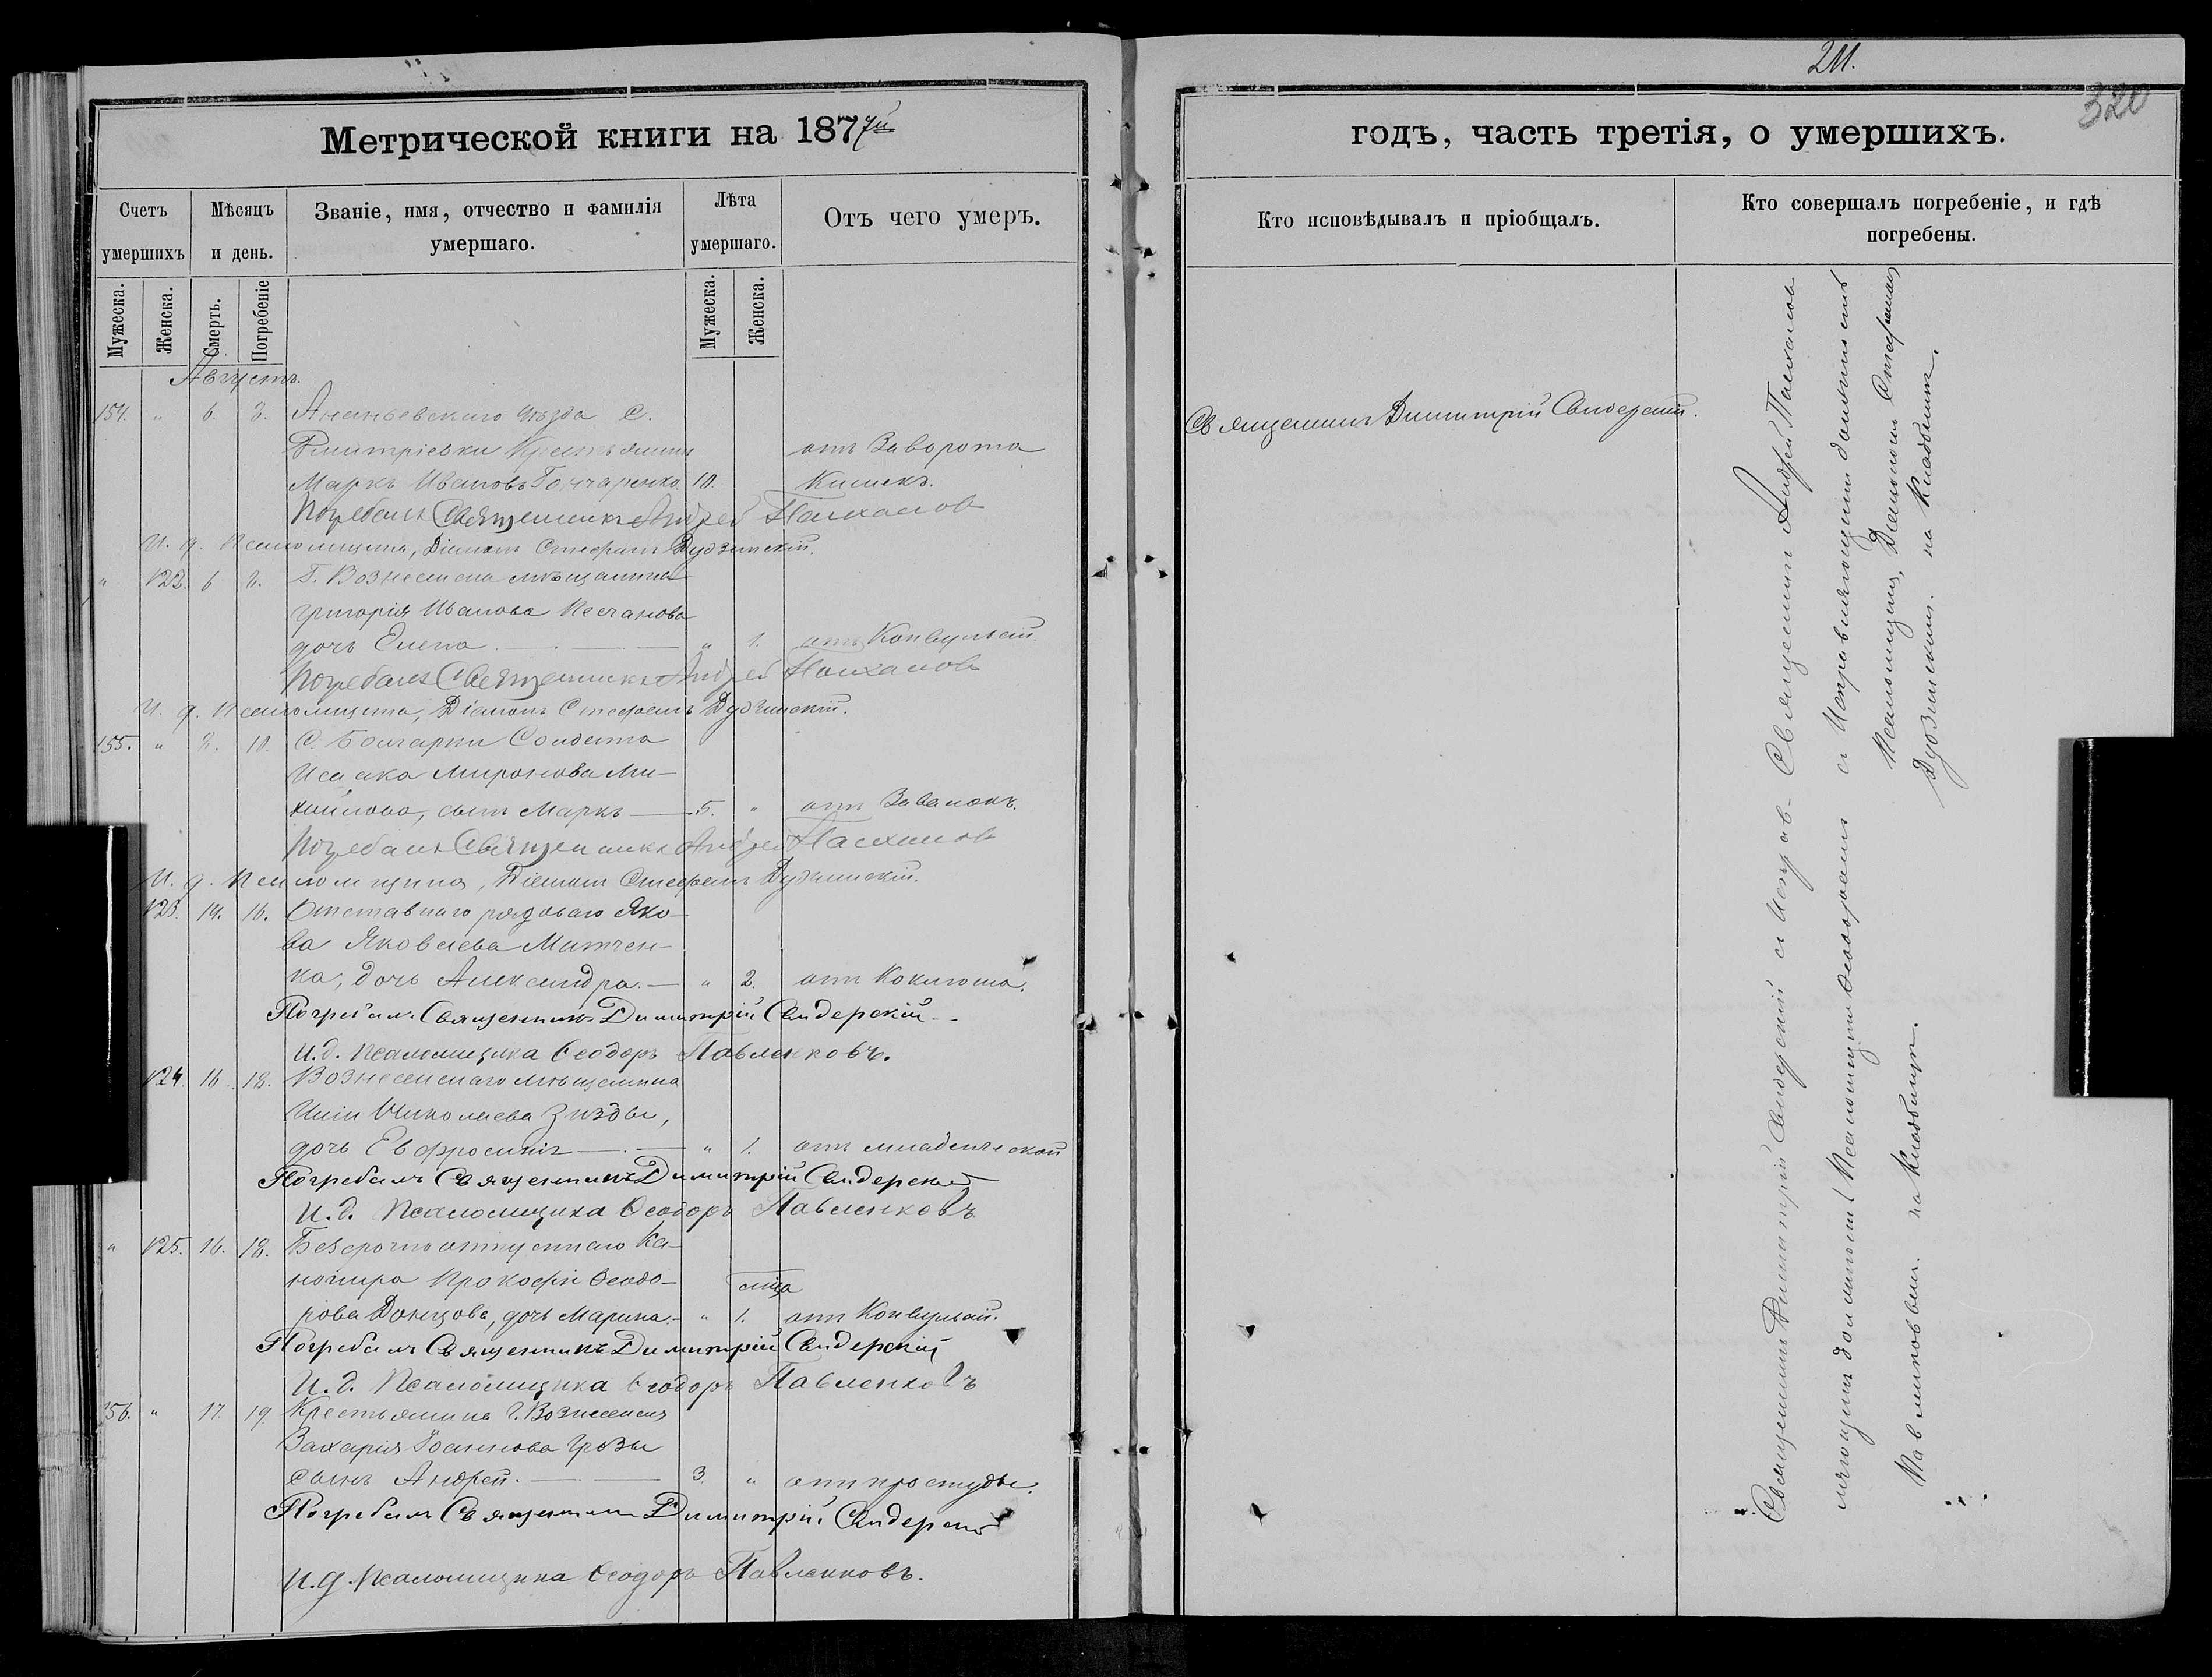 211.
320
Метрической книги на 1877й
годъ, часть третія, о умершихъ.
Счетъ умершихъ
Мѣсяцъ и день.
Званіе, имя, отчество и фамилія умершаго.
Лѣта умершаго.
Отъ чего умеръ.
Кто исповѣдывалъ и пріобщалъ.
Кто совершалъ погребеніе, и гдѣ погребены.
Мужеска.
Женска.
Смерть.
Погребеніе
Мужеска.
Женска.
Августъ.
154. " 6. 8. Ананьевскаго уѣзда с.
Дмитріевки Крестьянинъ отъ Заворота
Маркъ Ивановъ Гончаренко. 10. Кишекъ.
Священникъ Димитрій Свидерскій.
Погребалъ Священникъ Андрей
И. д. Псаломщика, Діаконъ Стефанъ Дудзинскій.
" 122. 6 8. Г. Вознесенска мѣщанина
Григорія Иванова Песчанова
дочь Елена " 1. отъ Конвульсій.
Погребалъ Священникъ Андрей
И. д. Псаломщика, Діаконъ Стефанъ Дудзинскій.
155. " 8. 10. С. Болгарки Солдата
Исаака Миронова Ми-
хайлова, сынъ Маркъ 5. " отъ Завалокъ.
Погребалъ Священникъ Андрей
И. д. Псаломщика, Діаконъ Стефанъ Дудзинскій.
123. 14. 16. Отставнаго рядоваго Яко-
ва Яковлева Митчен-
ка, дочь Александра. " 2. отъ Коклюша.
Погребалъ Священникъ Димитрій Свидерскій
И. д. Псаломщика Ѳеодоръ Павленковъ.
124. 16. 18. Вознесенскаго мѣщанина
Николаева
дочь Евфросинія " 1. отъ младенческой
Погребалъ Священникъ Димитрій Свидерскій
И. д. Псаломщика Ѳеодоръ Павленковъ
" 125. 16. 18. Безсрочноотпускнаго Ка-
нонира Прокофія Ѳеодо-
рова Донцова, дочь Марина. " 1. отъ Конвульсій.
Погребалъ Священникъ Димитрій Свидерскій
И. д. Псаломщика Ѳеодоръ Павленковъ
156. " 17. 19. Крестьянина г. Вознесенска
Захарія Іоаннова Грозы
сынъ Андрей. 3. " отъ простуды.
Погребалъ Священникъ Димитрій Свидерскій
И. д. Псаломщика Ѳеодоръ Павленковъ.
Священникъ Андрей
съ Исправляющимъ должность
Псаломщика, Діакономъ Стефаномъ
Дудзинскимъ. на Кладбищѣ.
Священникъ Димитрій Свидерскій съ Исправ-
ляющимъ должность Псаломщика Ѳеодоромъ
Павленковымъ. на Кладбищѣ.